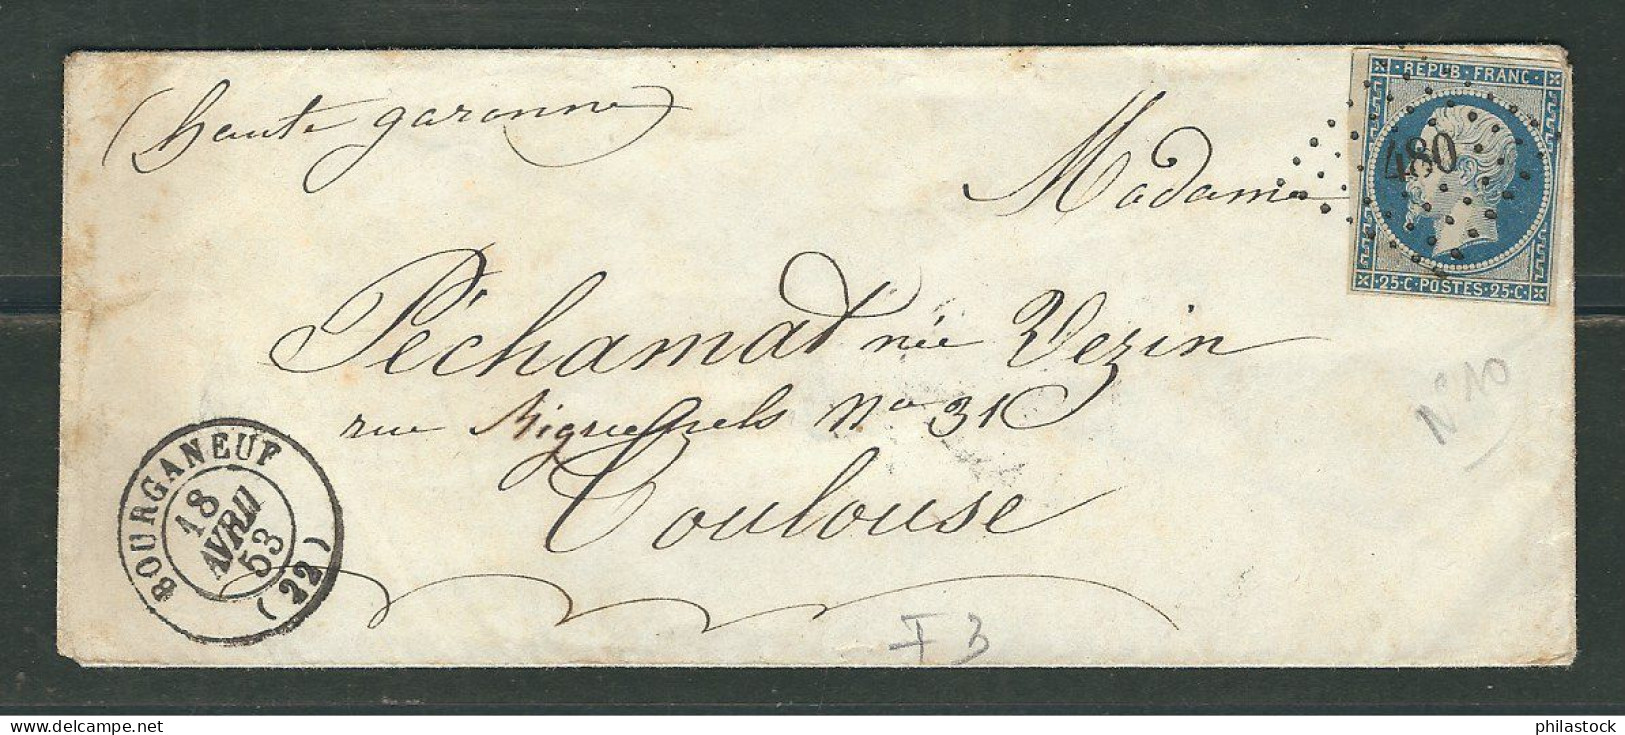 (haute garonne)
Madame
Péchamat née Vezin
rue Riquepels No 31
Toulouse
REPUB·FRANC·
480
·25·C·POSTES·25·C·
N°10
BOURGANEUF
18
AVRIL
53
(22)
F3
www.delcampe.net
philastock